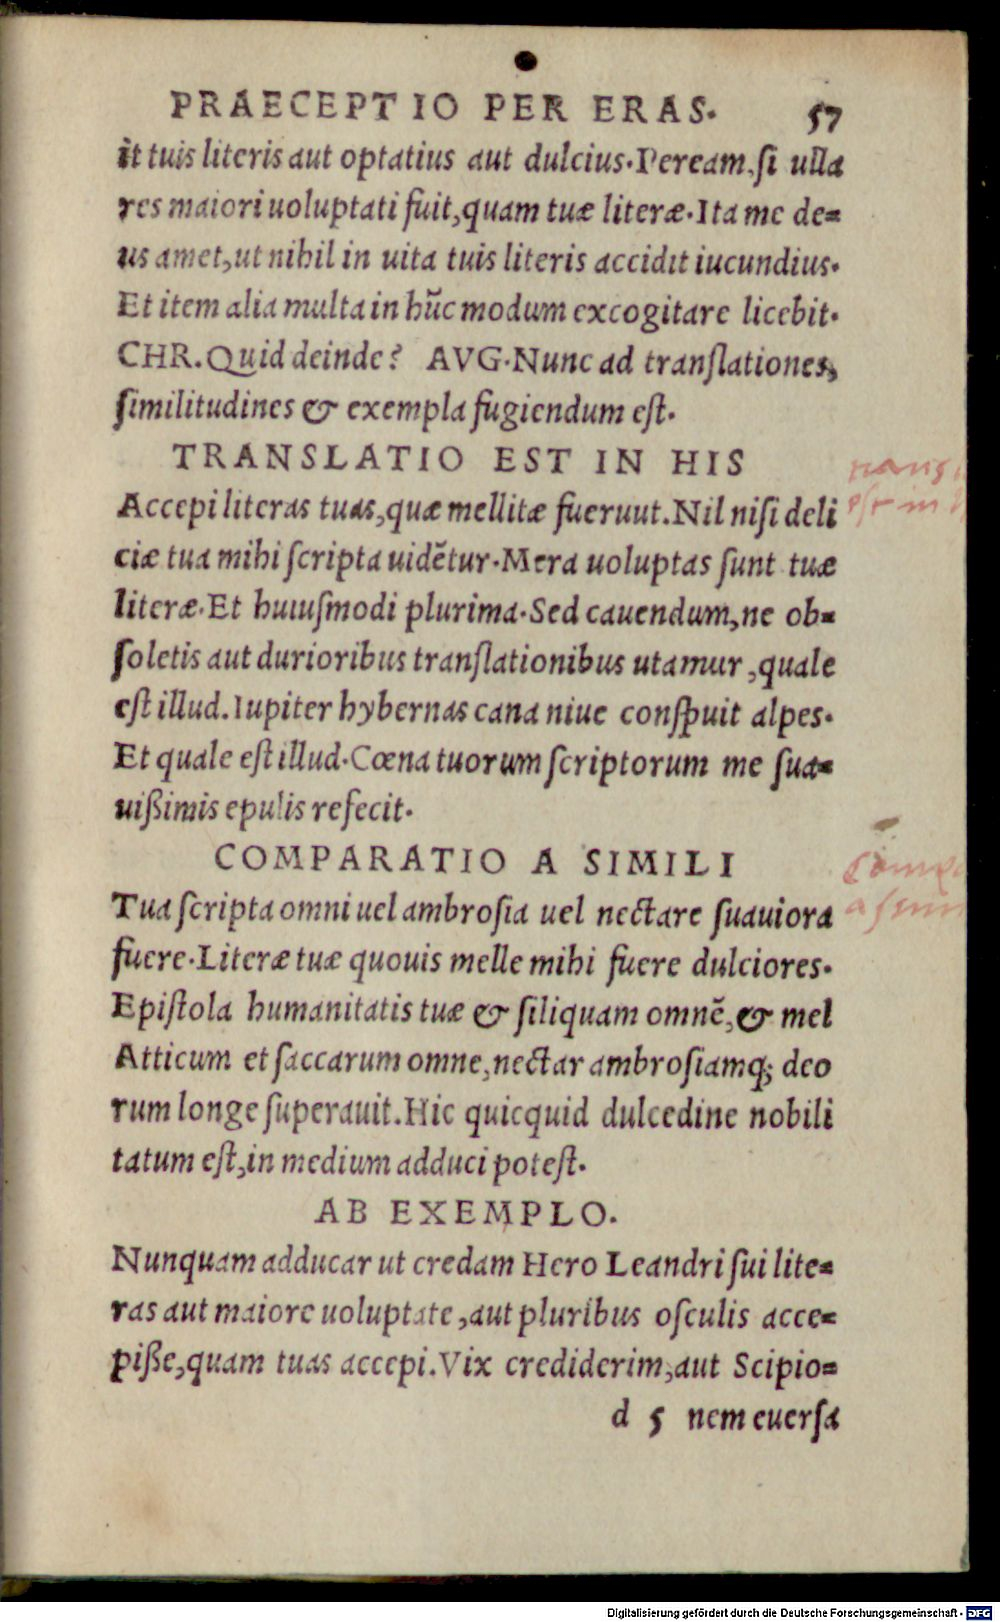 PRAECEPTIO PER ERAS. 57
it tuis literis aut optatius aut dulcius. Peream, ſi ulla
res maiori uoluptati fuit, quam tuæ literæ. Ita me de=
us amet, ut nihil in uita tuis literis accidit iucundius.
Et item alia multa in hūc modum excogitare licebit.
CHR. Quid deinde? AVG. Nunc ad tranſlationes,
ſimilitudines & exempla fugiendum eſt.
TRANSLATIO EST IN HIS
Accepi literas tuas, quæ mellitæ fueruut. Nil niſi deli
ciæ tua mihi ſcripta uidētur. Mera uoluptas ſunt tuæ
literæ. Et huiuſmodi plurima. Sed cauendum, ne ob=
ſoletis aut durioribus tranſlationibus utamur, quale
eſt illud. Iupiter hybernas cana niue conſpuit alpes.
Et quale eſt illud. Cœna tuorum ſcriptorum me ſua=
uißimis epulis refecit.
COMPARATIO A SIMILI
Tua ſcripta omni uel ambroſia uel nectare ſuauiora
fuere. Literæ tuæ quouis melle mihi fuere dulciores.
Epiſtola humanitatis tuæ & ſiliquam omnē, & mel
Atticum et ſaccarum omne, nectar ambroſiamq; deo
rum longe ſuperauit. Hic quicquid dulcedine nobili
tatum eſt, in medium adduci poteſt.
AB EXEMPLO.
Nunquam adducar ut credam Hero Leandri ſui lite=
ras aut maiore uoluptate, aut pluribus oſculis acce=
piße, quam tuas accepi. Vix crediderim, aut Scipio=
d 5 nem euerſa
Digitalisierung gefördert durch die Deutsche Forschungsgemeinschaft - DFG